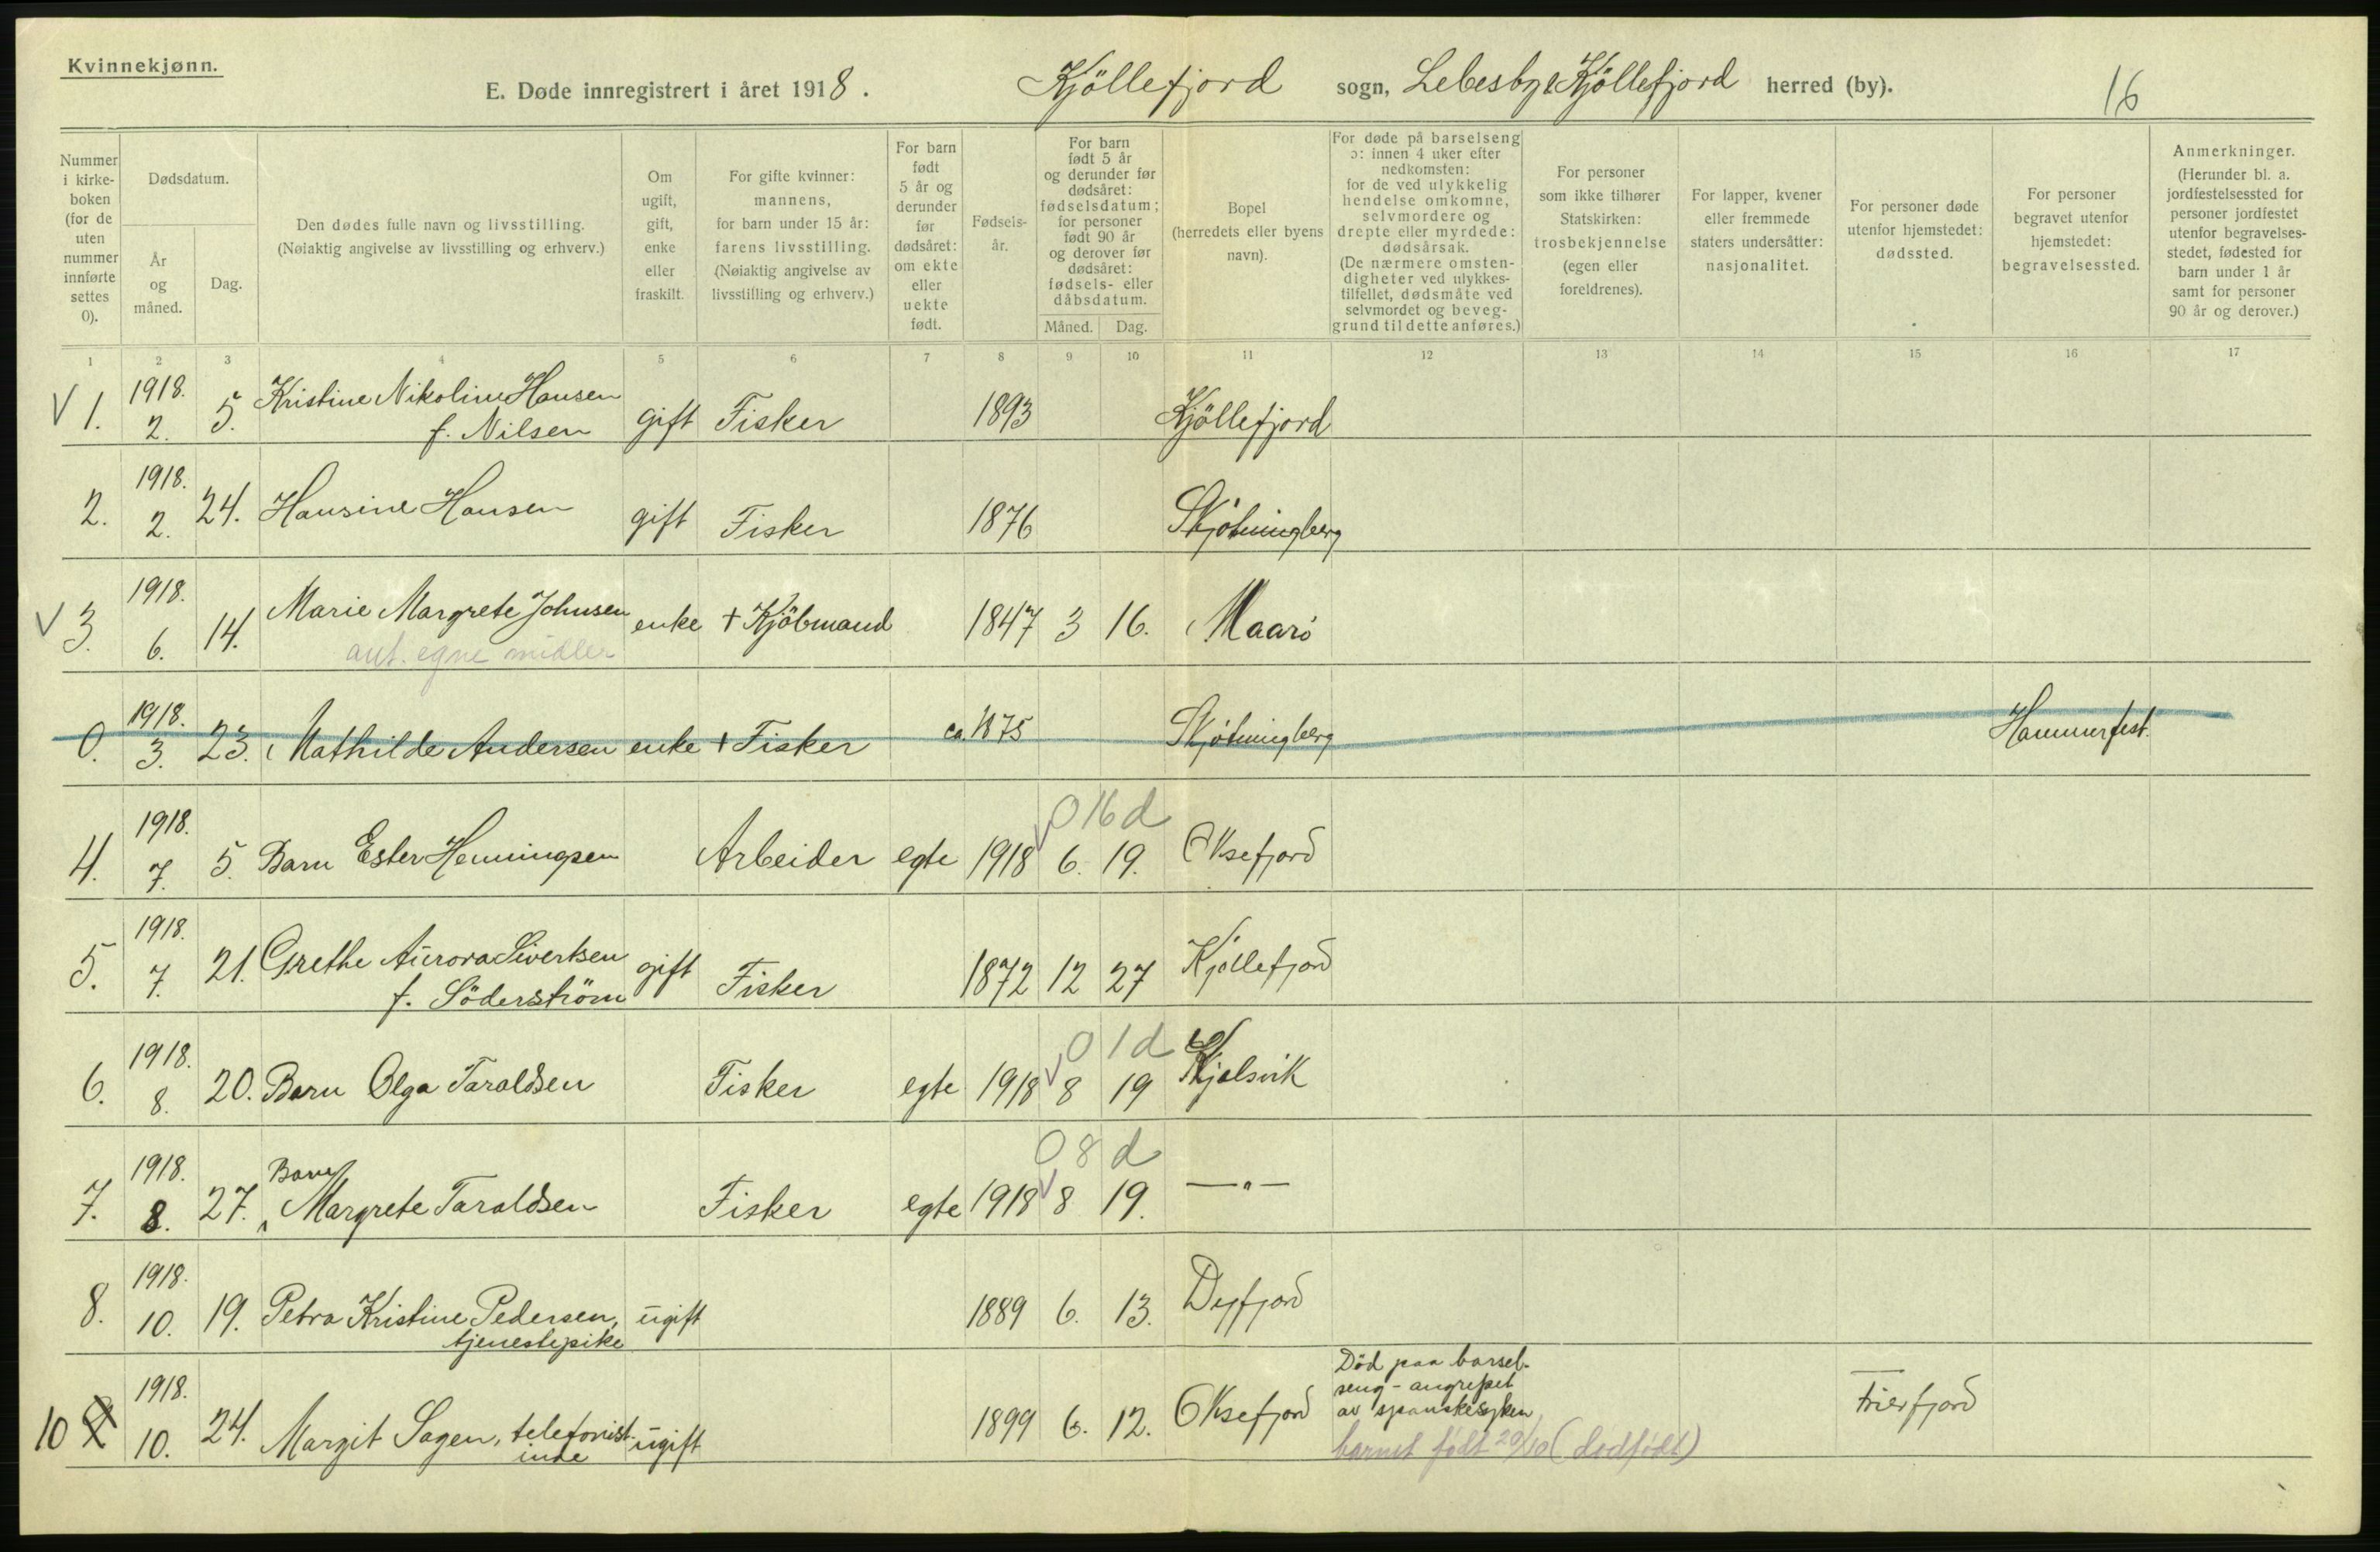 Kvinnekjønn.
E. Døde innregistrert i året 1918. Kjöllefjord sogn, Lebesby & Kjöllefjord herred (by). 16
Nummer i kirke-boken (for de uten nummer innførte settes 0).
Dødsdatum.
År og måned.
Dag.
Den dødes fulle navn og livsstilling. (Nøiaktig angivelse av livsstilling og erhverv.)
Om ugift, gift, enke eller fraskilt.
For gifte kvinner: mannens, for barn under 15 år: farens livsstilling. (Nøiaktig angivelse av livsstilling og erhverv.)
For barn født 5 år og derunder før dødsåret: om ekte eller uekte født.
Fødsels-år.
For barn født 5 år og derunder før dødsåret: fødselsdatum; for personer født 90 år og derover før dødsåret: fødsels- eller dåbsdatum.
Måned. Dag.
Bopel (herredets eller byens navn).
For døde på barselseng ɔ: innen 4 uker efter nedkomsten: for de ved ulykkelig hendelse omkomne, selvmordere og drepte eller myrdede: dødsårsak. (De nærmere omsten-digheter ved ulykkes-tilfellet, dødsmåte ved selvmordet og beveg-grund til dette anføres.)
For personer som ikke tilhører Statskirken: trosbekjennelse (egen eller foreldrenes).
For lapper, kvener eller fremmede staters undersåtter: nasjonalitet.
For personer døde utenfor hjemstedet: dødssted.
For personer begravet utenfor hjemstedet: begravelsessted.
Anmerkninger. (Herunder bl. a. jordfestelsessted for personer jordfestet utenfor begravelses-stedet, fødested for barn under 1 år samt for personer 90 år og derover.)
1 2 3 4 5 6 7 8 9 10 11 12 13 14 15 16 17
V 1. 1918. 2. 5. Kristine Nikoline Hansen f. Nilsen gift Fisker 1893 Kjöllefjord
2. 1918. 2. 24. Hansine Hansen gift Fisker 1876 Skjötningberg
V 3. 1918. 6. 14. Marie Margrete Johnsen enke + Kjöbmand 1847 3 16. Maarö
ant. egne midler
0. 1918. 3. 23. Mathilde Andersen enke + Fisker ca. 1875 Skjötningberg Hammerfest.
0 16 d
4. 1918. 7. 5. Barn Ester Henningsen Arbeider egte 1918 6. 19. Oksefjord
5. 1918. 7. 21. Grethe Aurora Sivertsen f. Söderström gift Fisker 1872 12 27 Kjöllefjord
0 1 d
6. 1918. 8. 20. Barn Olga Taraldsen Fisker egte 1918 8 19 Skjelsvik
0 8 d
7. 1918. 8. 27. Barn Margrete Taraldsen Fisker egte 1918 8 19. —"—
8. 1918. 10. 19. Petra Kristine Pedersen, tjenestepike ugift 1889 6. 13. Dyfjord
10 1918. 10. 24. Margit Sagen, telefonistinde ugift 1899 6. 12. Oksefjord Död paa barsel-seng - angrepet av spanskesyken Frierfjord
barnet født 20/10 (dødfødt)